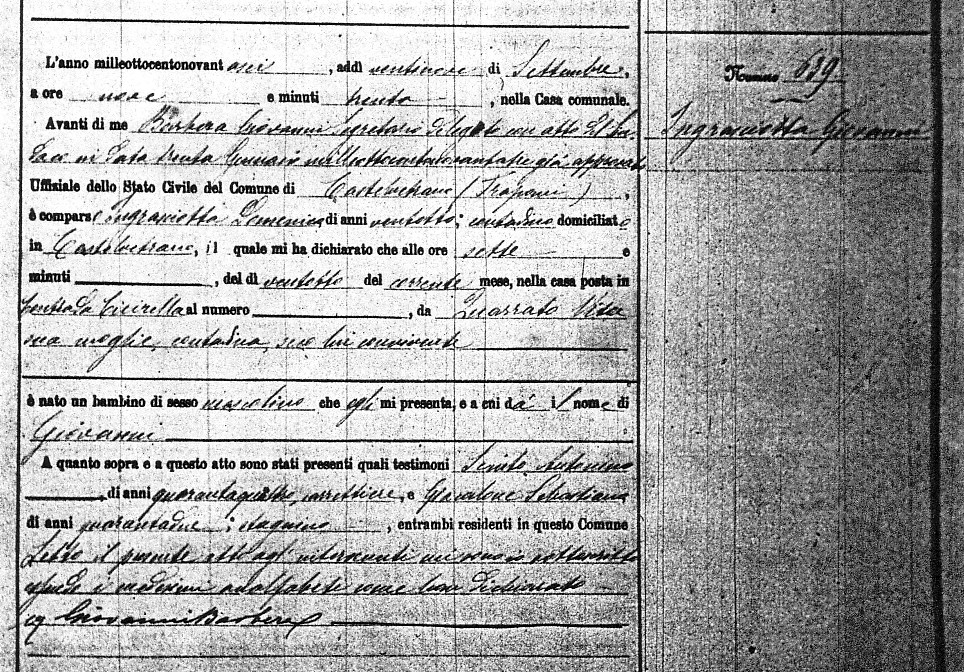 L'anno millottocentonovantasei, addì ventinove di Settembre,
a ore nove e minuti trenta, nella Casa comunale.
Avanti di me Barbera Giovanni Segretario Delegato con atto del
data trenta Gennaro milleottocentonovantasei già approvato
Uffiziale dello Stato Civile del Comune di Castelvetrano (Trapani),
è comparso Ingrasciotta Domenico di anni ventotto; contadino domiciliato
in Castelvetrano, il quale mi ha dichiarato che alle ore sette e
minuti , del dì ventotto del corrente mese, nella casa posta in
al numero , da Quarrato Vita
sua moglie, contadina, seco lui convivente
è nato un bambino di sesso mascolino che egli mi presenta, e a cui dà il nome di
Giovanni
A quanto sopra e a questo atto sono stati presenti quali testimoni Antonino
, di anni quarantaquattro, carrettiere, e Giacalone Sebastiano
di anni quarantadue; , entrambi residenti in questo Comune
Letto il presente atto agl' intervenuti
i medesimi analfabeti come han dichiarato
Giovanni Barbera
Numero 639
Ingrasciotta Giovanni